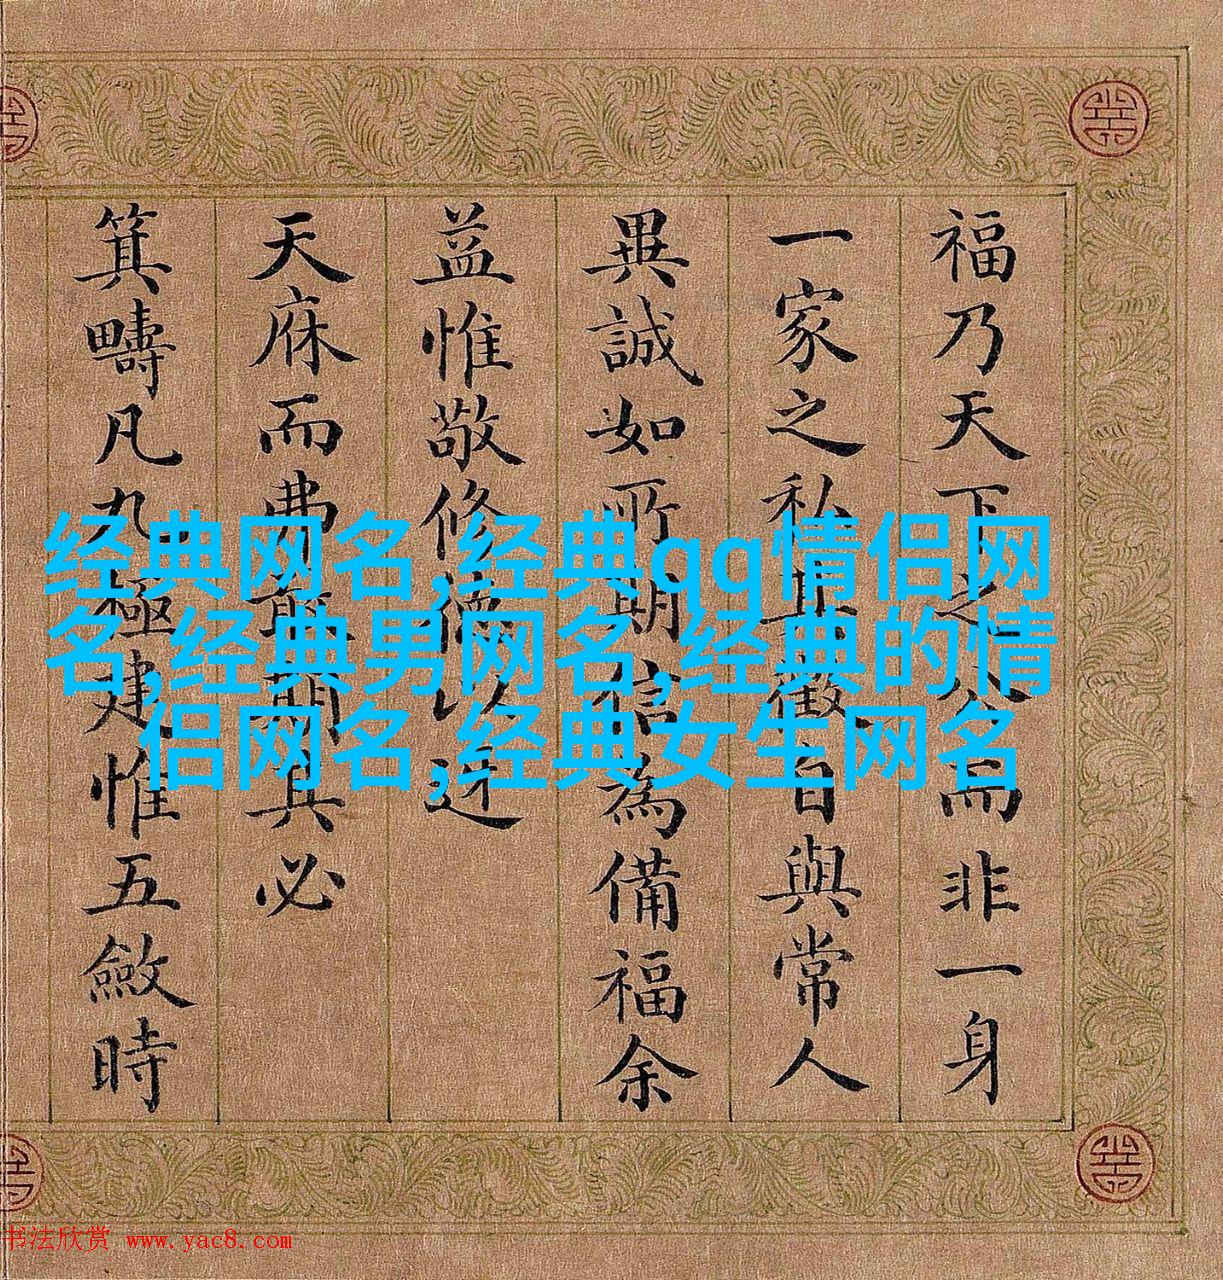 福乃天下之而非一身
一家之私其徵自與常人
異誠如所期信為備福余
益惟敬修德以迓
天庥而弗敢期其必
箕疇凡九極建惟五斂時
经典网名,经典qq情侣网
名,经典男网名,经典的情
侣网名,经典女生网名
书法欣赏 www.yac8.com